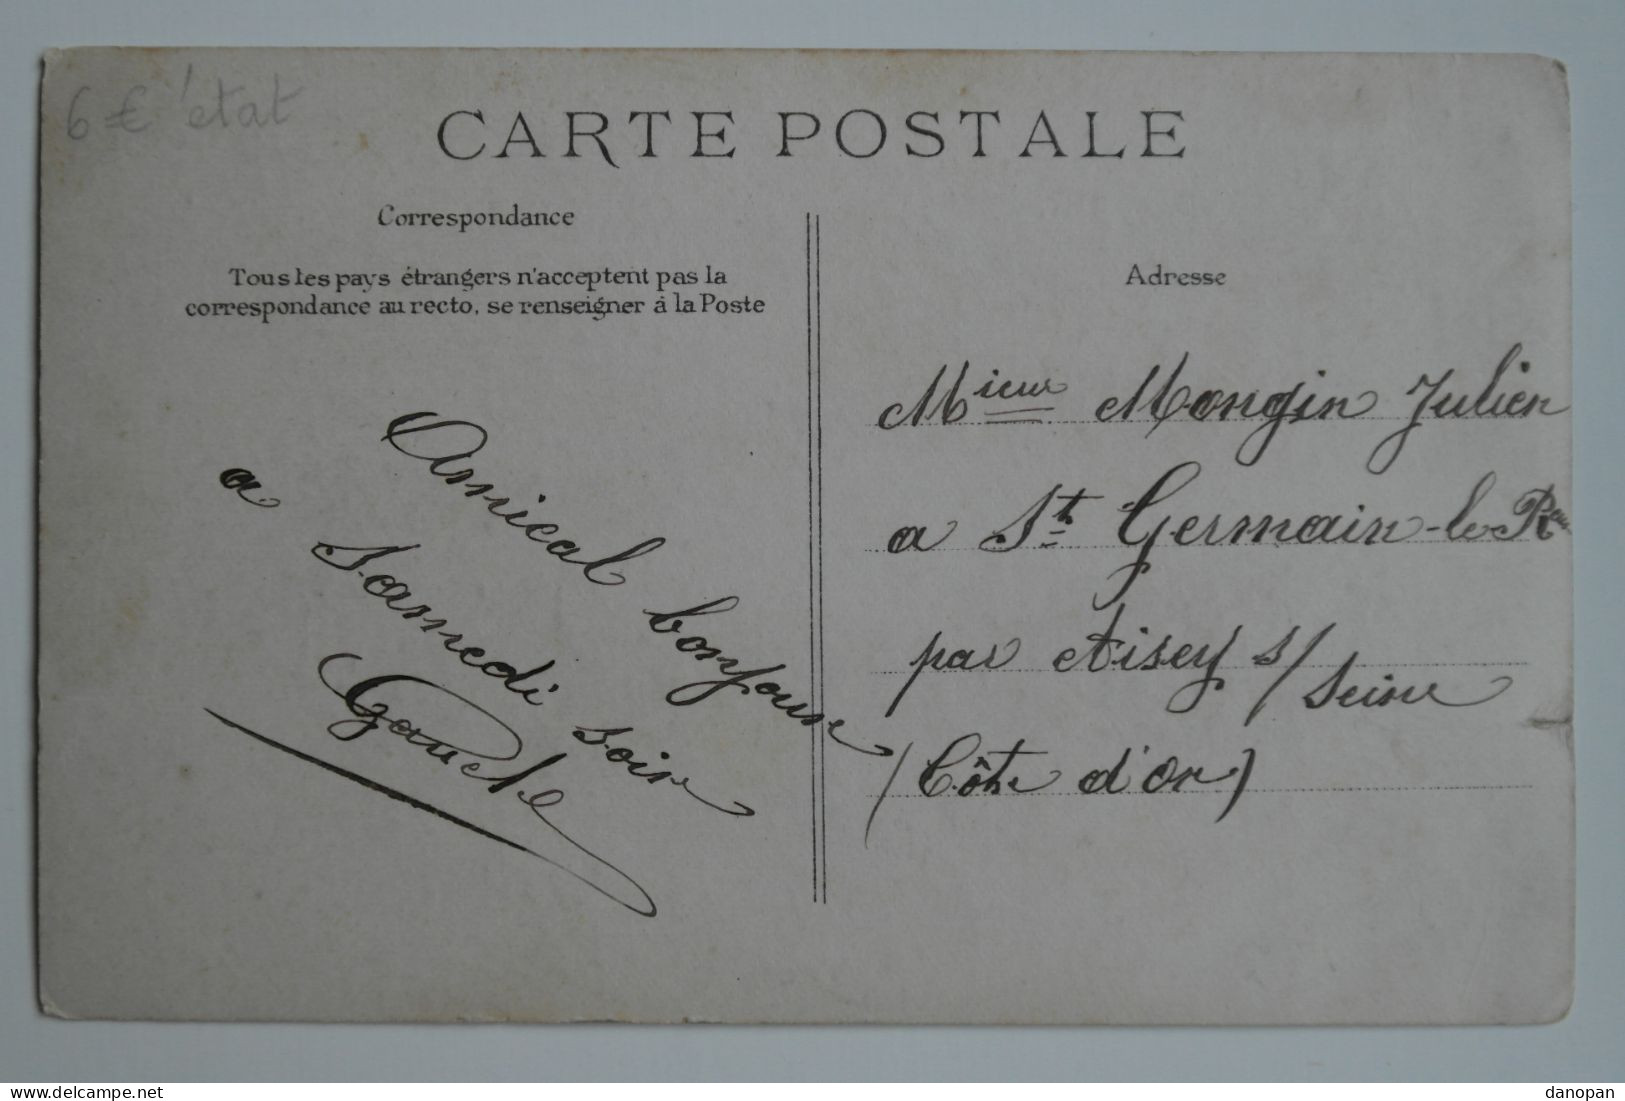 6 € état
CARTE POSTALE
Correspondance
Tous les pays étrangers n'acceptent pas la
correspondance au recto, se renseigner à la Poste
Amical bonjour
a Samedi soir
Gauche
Adresse
Mieur Mongin Julien
a St Germain-le-Reux
par Aisey s/Seine
(Côte d'or)
www.delcampe.net
danopan